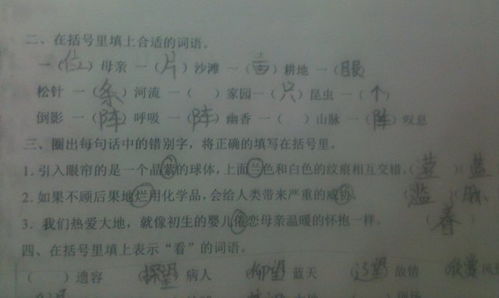 二、在括号里填上合适的词语。
一（位）母亲 一（片）沙滩 一（亩）耕地 一（眼）
松针 一（条）河流 一（ ）家园 一（只）昆虫 一（个）
倒影 一（阵）呼吸 一（阵）幽香 一（ ）山脉 一（阵）叹息
三、圈出每句话中的错别字，将正确的填写在括号里。
1. 引入眼帘的是一个晶的球体，上面兰色和白色的纹痕相互交错。（ ）（蓝
2. 如果不顾后果地烂用化学品，会给人类带来严重的威协。（滥）（胁
3. 我们热爱大地，就像初生的婴儿依恋母亲温暖的怀抱一样。（ ）
四、在括号里填上表示“看”的词语。
（ ）遗容 （探望）病人 （仰望）蓝天 （ ）敌情 （欣赏